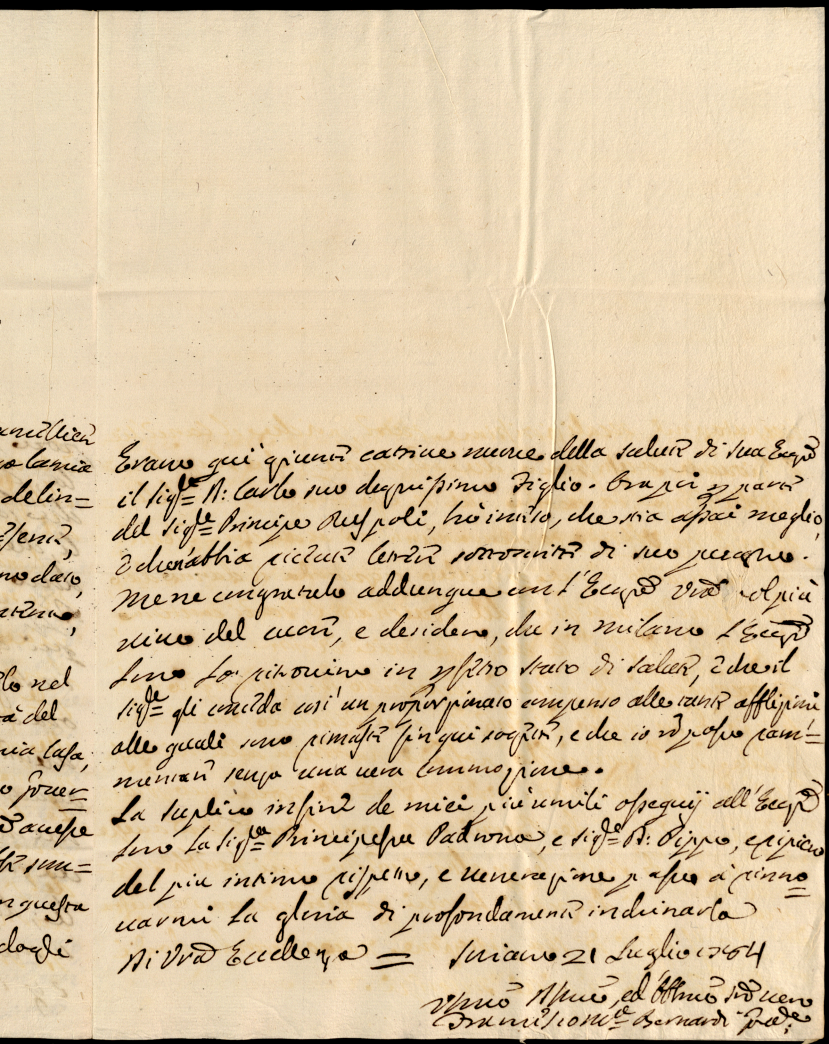 anno data,
lo nel
del
mia Casa,
in questa
dagli
Erano qui giunte cattive nuove della salute di sua Ecc:
il Sig:re D: Carlo suo degnissimo Figlio. Ora poi per parte
del Sig:re Principe Ruspoli, hò inteso, che stia assai meglio,
e che abbia lettera sottoscritta di suo pugno.
Me ne congratulo addunque con l'Ecc: Vrã col più
vivo del cuore, e desidero, che in Milano l'Ecc:
loro Lo ritrovino in perfetto stato di salute, e che il
Sig:re gli conceda così un proporzionato compenso alle tante afflizioni
alle quali sono rimaste fin qui soggette, e che io nõ posso ram=
mentare senza una vera commozione.
La suplico infine de miei più umili ossequij all'Ecc:
loro La Sig:ra Principessa Padrona, e Sig:re D: Pippo, e ripieno
del più intimo rispetto, e venerazione passo à rinno=
varmi La gloria di profondamente inchinarla
Di Vrã Eccellenza = Soriano 21 Luglio 1764
Umõ Dmõ, ed Obbmõ servo vero
Bernardi